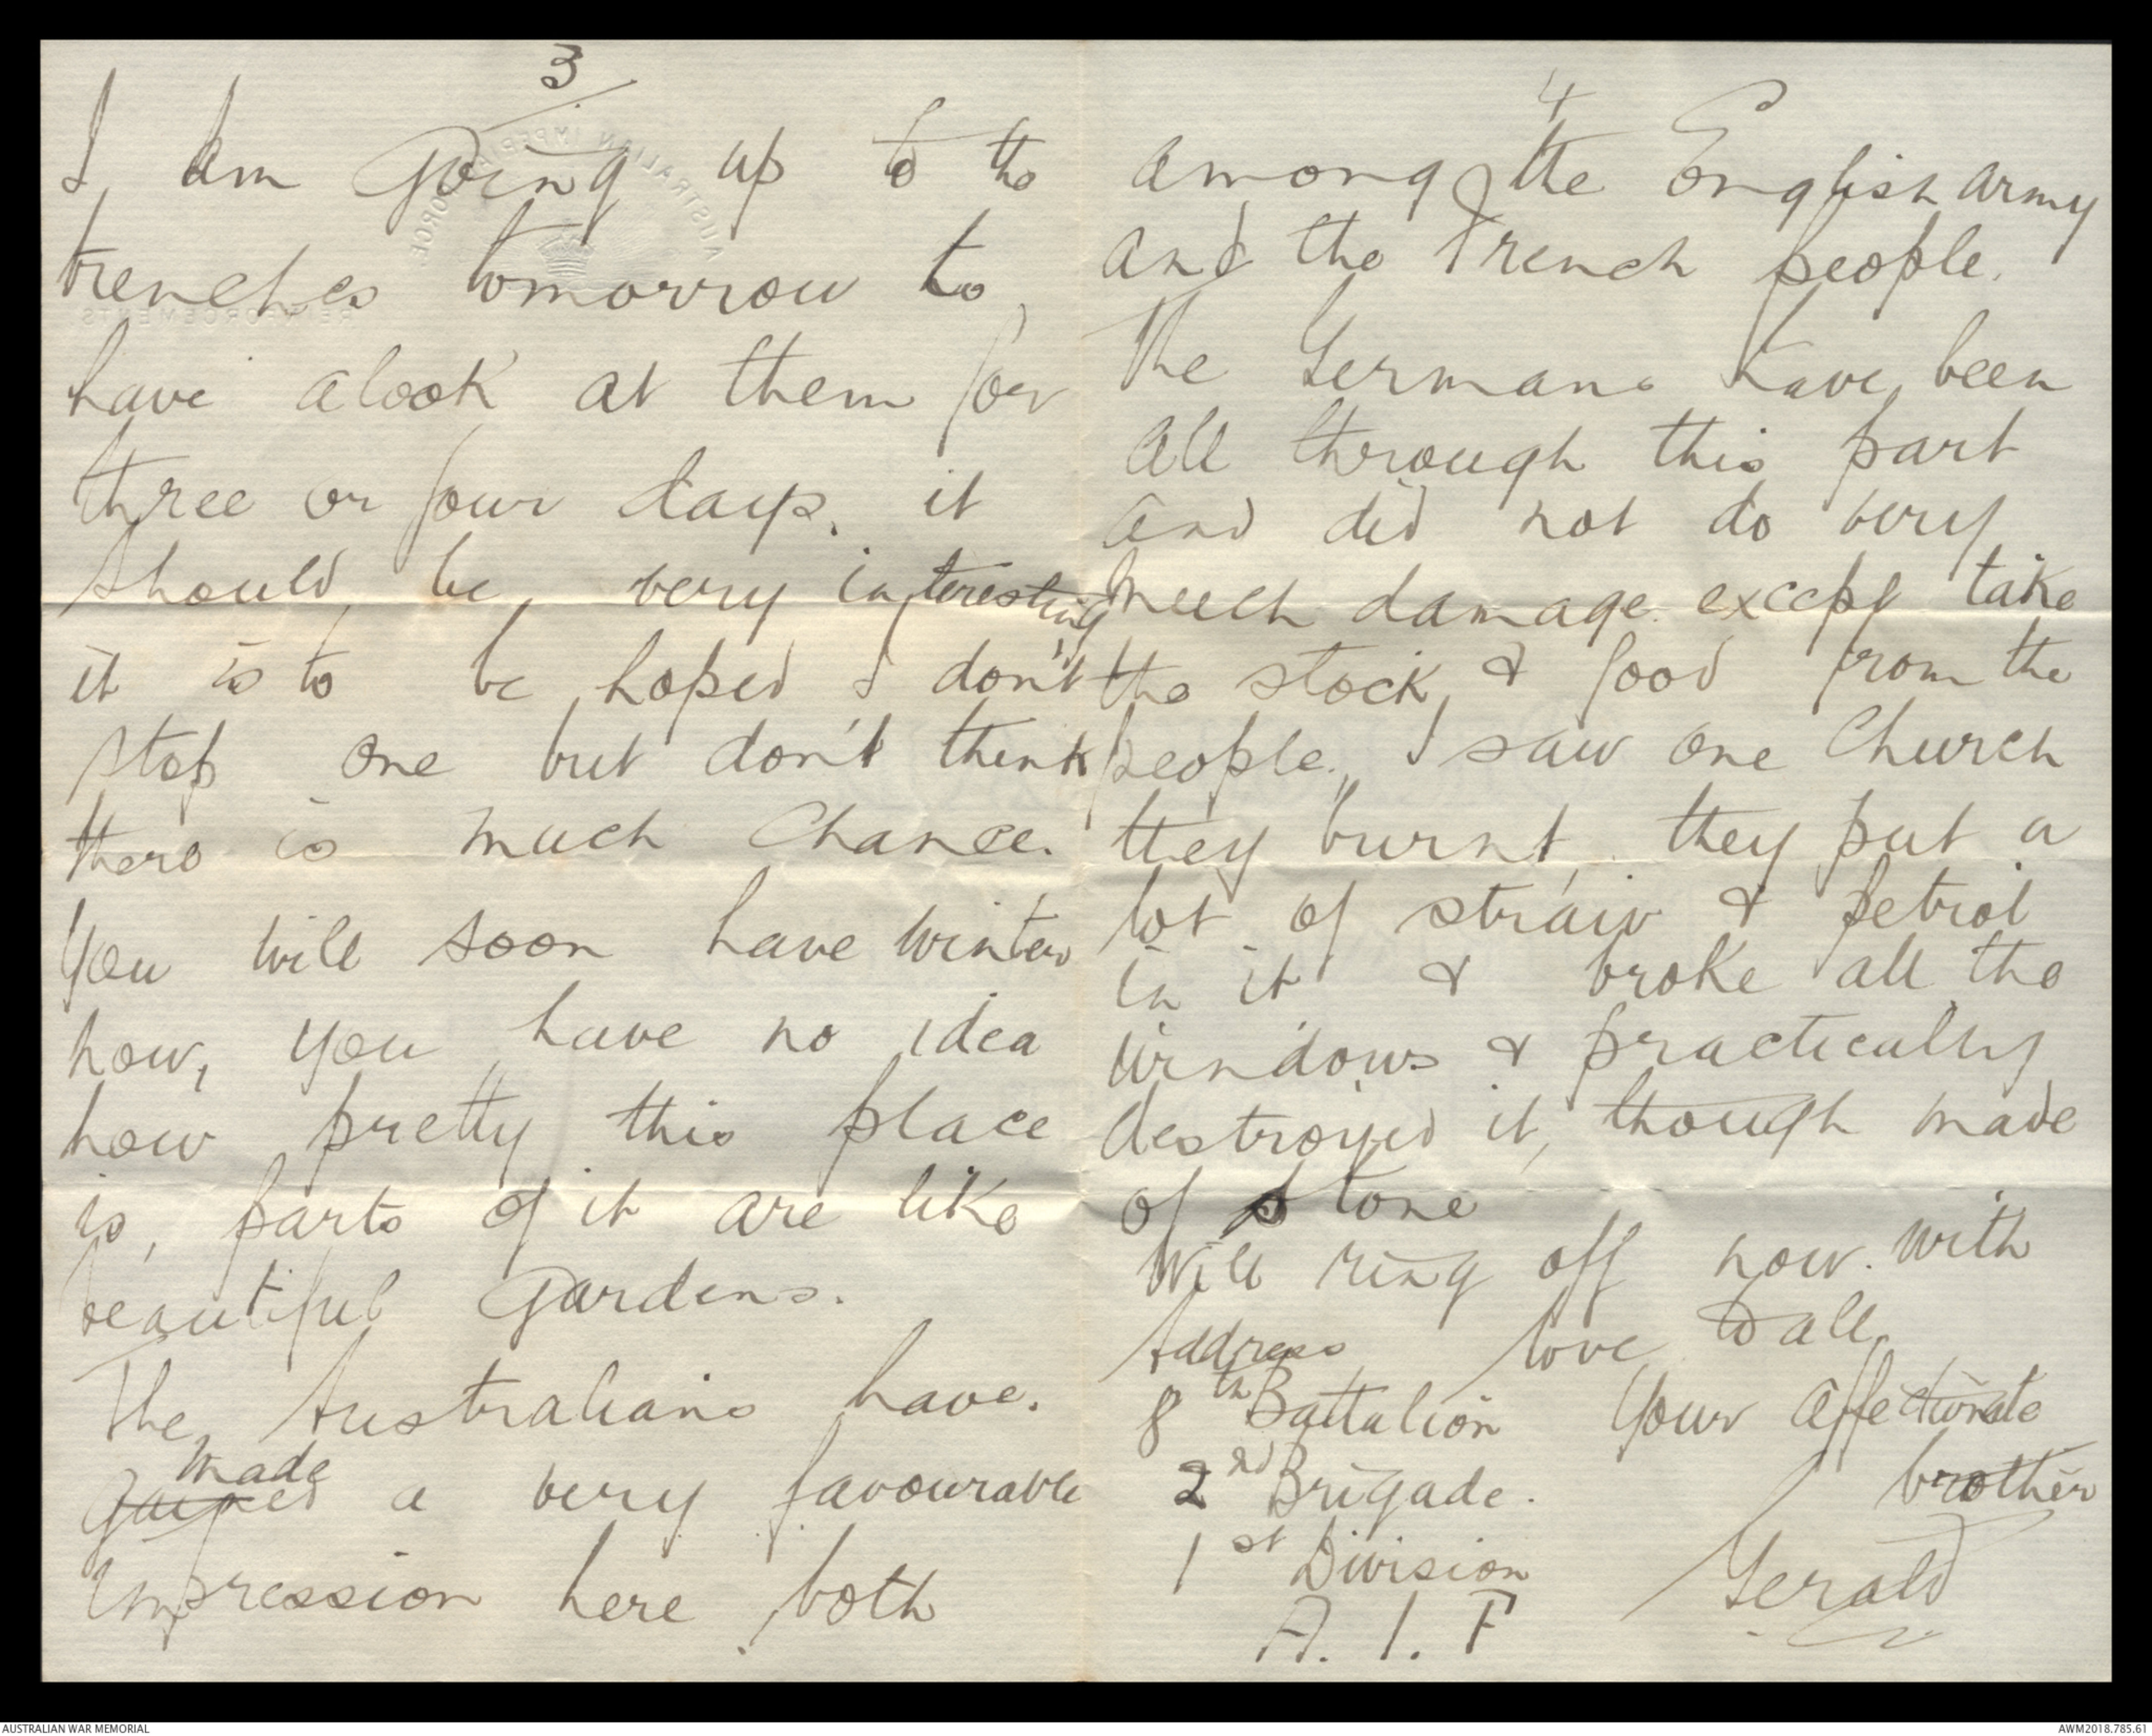 3
I am going up to the
trenches tomorrow to
have a look at them for
three or four days. it
should be very interesting
it is to be hoped I don't
stop one but don't think
there is much chance.
You will soon have winter
now, you have no idea
how pretty this place
is, parts of it are like
beautiful Gardens.
The Australians have.
made
gained a very favourable
impression here both
4
among the English army
and the French people.
The Germans have been
all through this part
and did not do very
much damage except take
the stock & food from the
people. I saw one Church
they burnt, they put a
lot of straw & petrol
in it & broke all the
windows & practically
destroyed it, though made
of stone
Will ring off now. with
love to all
Your affectionate
brother
Gerald
Address
8th Battalion
2nd Brigade.
1st Division
A. I. F
AUSTRALIAN IMPERIAL FORCE
REINFORCEMENTS
AUSTRALIAN WAR MEMORIAL
AWM2018.785.61